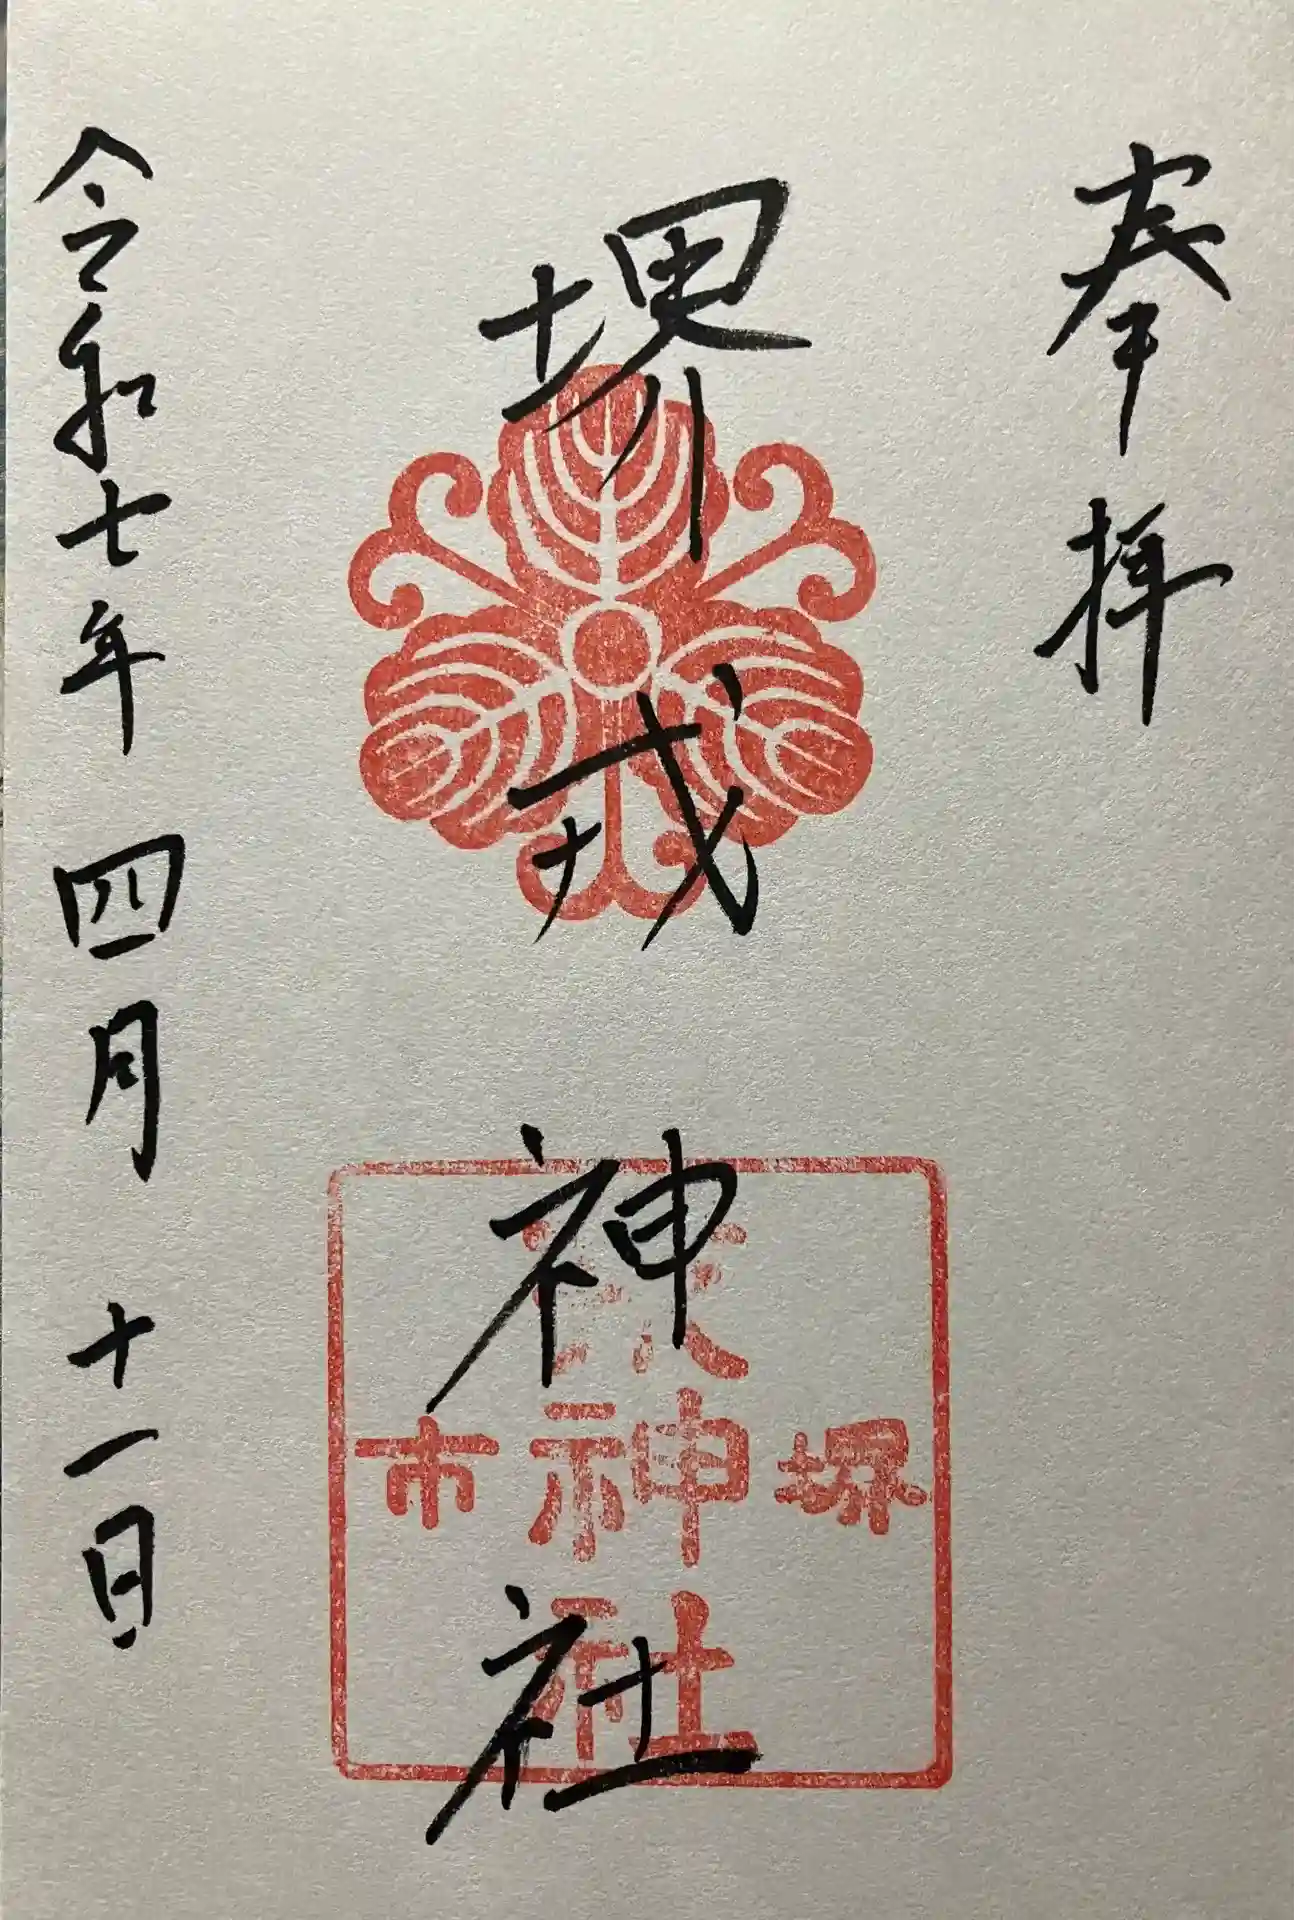 奉拝
堺戎神社
令和七年四月十一日
堺
神社
市